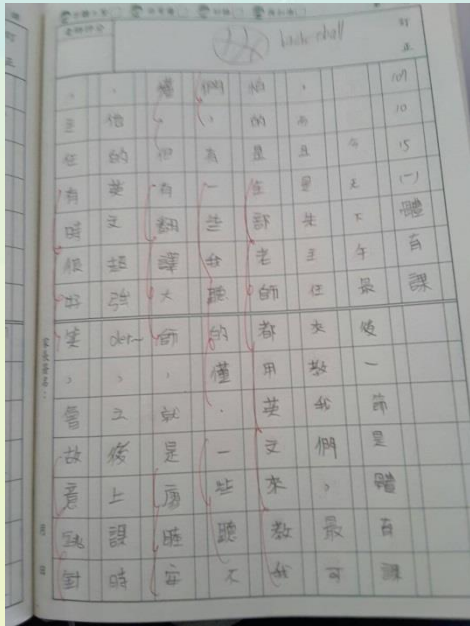 basketball
109 10 15 (一) 體育課
今天下午最後一節是體育課
，而且是朱主任來教我們，最可
怕的是全部老師都用英文來教我
們，有一些我聽的懂，一些聽不
懂，但有翻譯大師，就是廖睦安
，他的英文超強der~，之後上課時
，主任有時很好笑，會故意跳針
家長簽名：
月 日